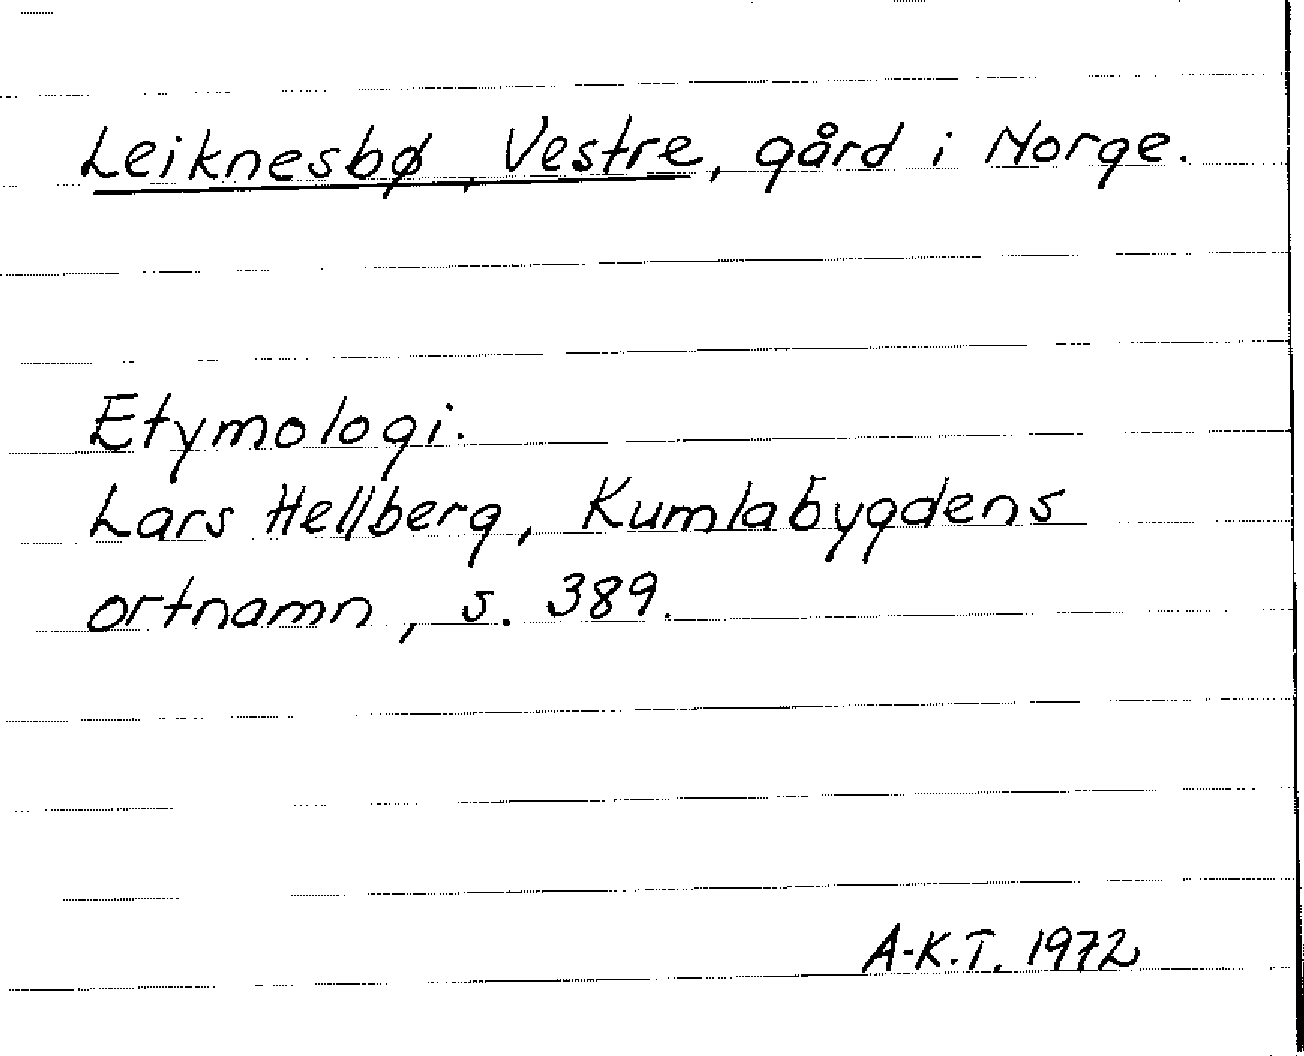 Leiknesbø, Vestre, gård i Norge.
Etymologi.
Lars Hellberg, Kumlabygdens
ortnamn, s. 389.
A-K.T. 1972